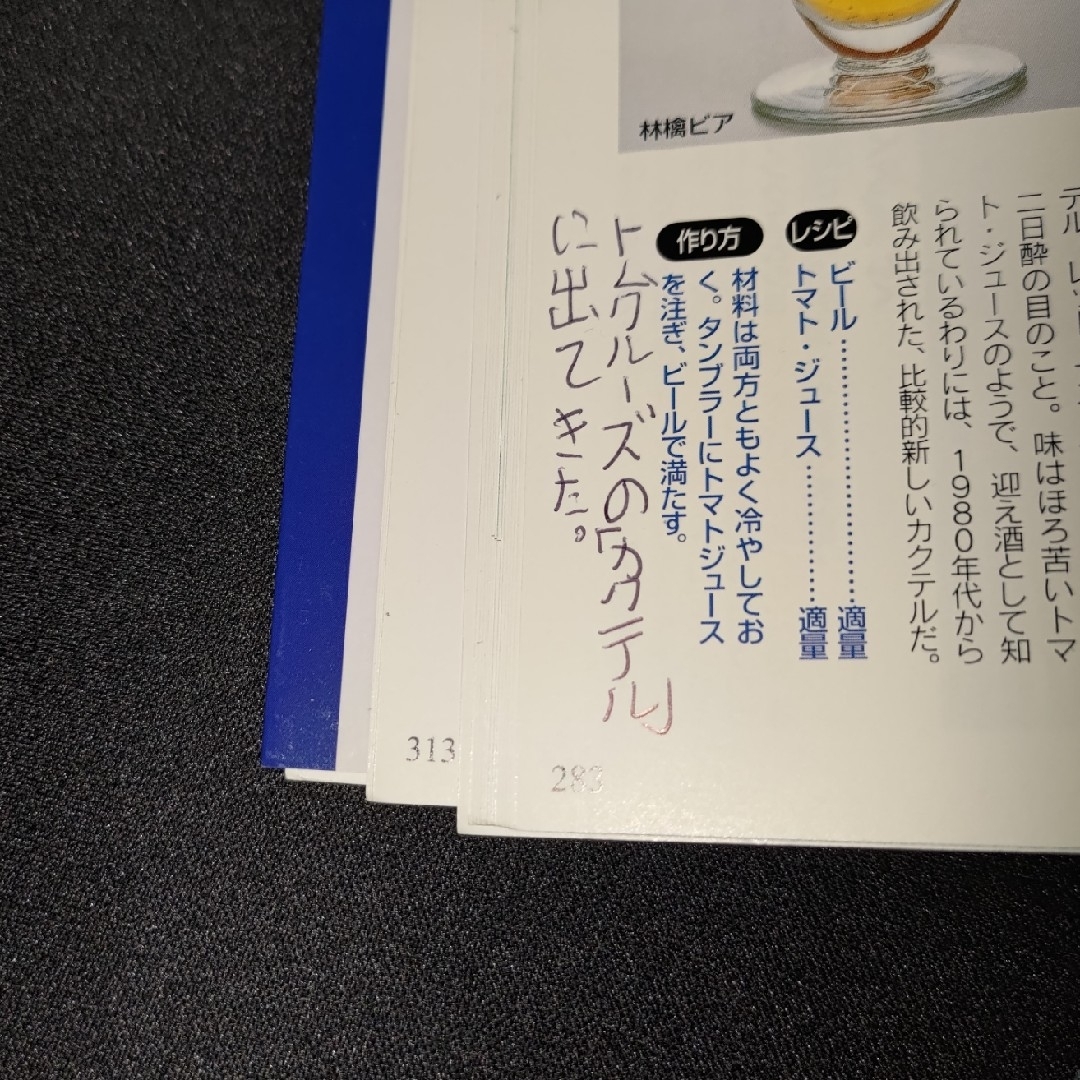 林檎ビア
二日酔の目のこと。味はほろ苦いトマ
ト・ジュースのようで、迎え酒として知
られているわりには、1980年代から
飲み出された、比較的新しいカクテルだ。
レシピ
ビール……………………適量
トマト・ジュース…………適量
作り方
材料は両方ともよく冷やしてお
く。タンブラーにトマトジュース
を注ぎ、ビールで満たす。
トムクルーズの「カクテル」
に出てきた。
313
283